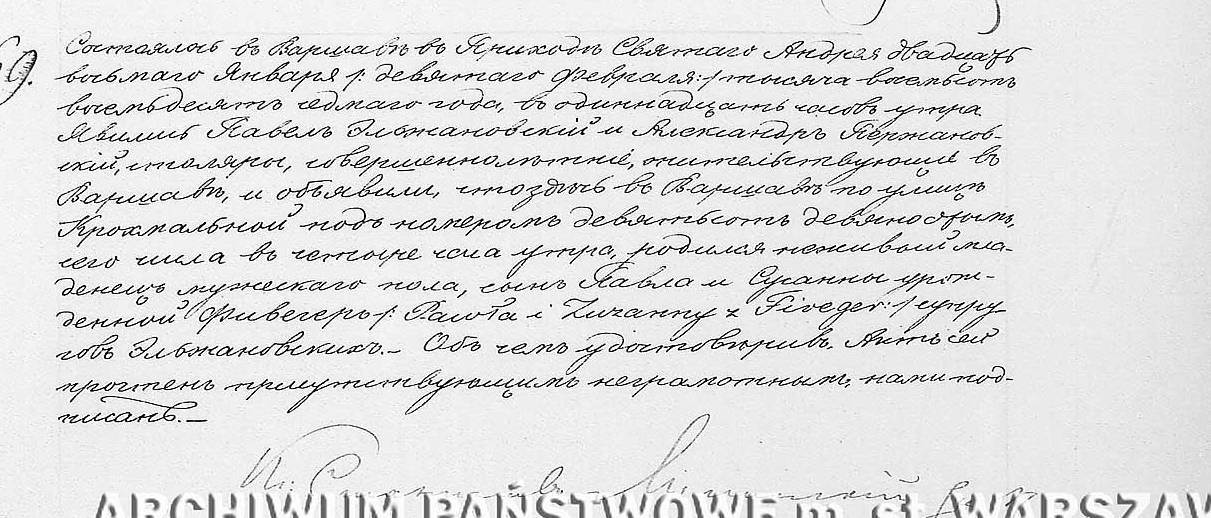 69.
Состоялось въ Варшавѣ въ Приходѣ Святаго Андрея двадцать
восьмаго Января /: девятаго Февраля :/ тысяча восемьсотъ
восемьдесятъ седмаго года, въ одиннадцать часовъ утра
Явились Павелъ Эльжановскій и Александръ Пержанов-
скій, столяры, совершеннолѣтніе, жительствующіе въ
Варшавѣ, и объявили, что здѣсь въ Варшавѣ по улицѣ
Крохмальной подъ номеромъ девятьсотъ девяностымъ,
сего числа въ четыре часа утра, родился неживой мла-
денецъ мужескаго пола, сынъ Павла и Сусанны урож-
денной Фивегеръ /: Pawła i Zuzanny z Fiveger :/ супру-
говъ Эльжановскихъ. — Объ чемъ удостовѣривъ, Актъ сей
прочтенъ присутствующимъ неграмотнымъ, нами под-
писанъ. —
ARCHIWUM PAŃSTWOWE m. st. WARSZAW